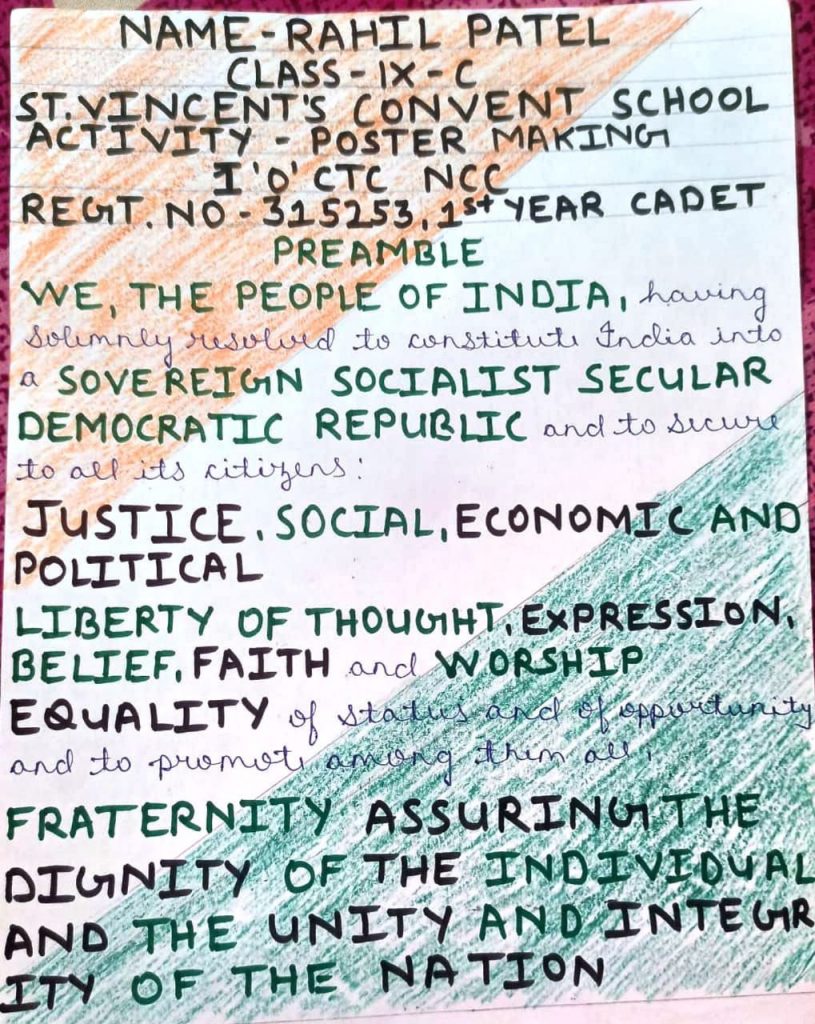 NAME-RAHIL PATEL
CLASS-IX-C
ST.VINCENT'S CONVENT SCHOOL
ACTIVITY - POSTER MAKING
I 'O' CTC NCC
REGT. NO - 315253, 1st YEAR CADET
PREAMBLE
WE, THE PEOPLE OF INDIA, having
solemnly resolved to constitute India into
a SOVEREIGN SOCIALIST SECULAR
DEMOCRATIC REPUBLIC and to secure
to all its citizens:
JUSTICE, SOCIAL, ECONOMIC AND
POLITICAL
LIBERTY OF THOUGHT, EXPRESSION,
BELIEF, FAITH and WORSHIP
EQUALITY of status and of opportunity
and to promote among them all;
FRATERNITY ASSURING THE
DIGNITY OF THE INDIVIDUAL
AND THE UNITY AND INTEGR
ITY OF THE NATION